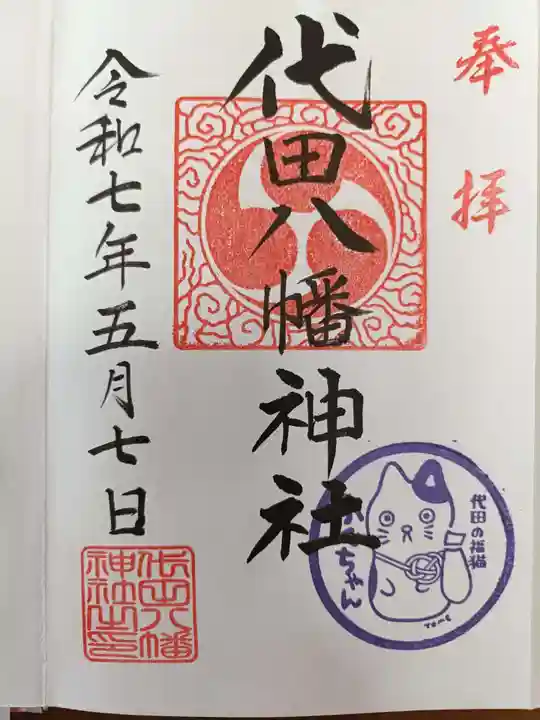 奉拝
代田八幡神社
令和七年五月七日
代田八幡
神社之印
代田の招福猫
ちゃん
TOME